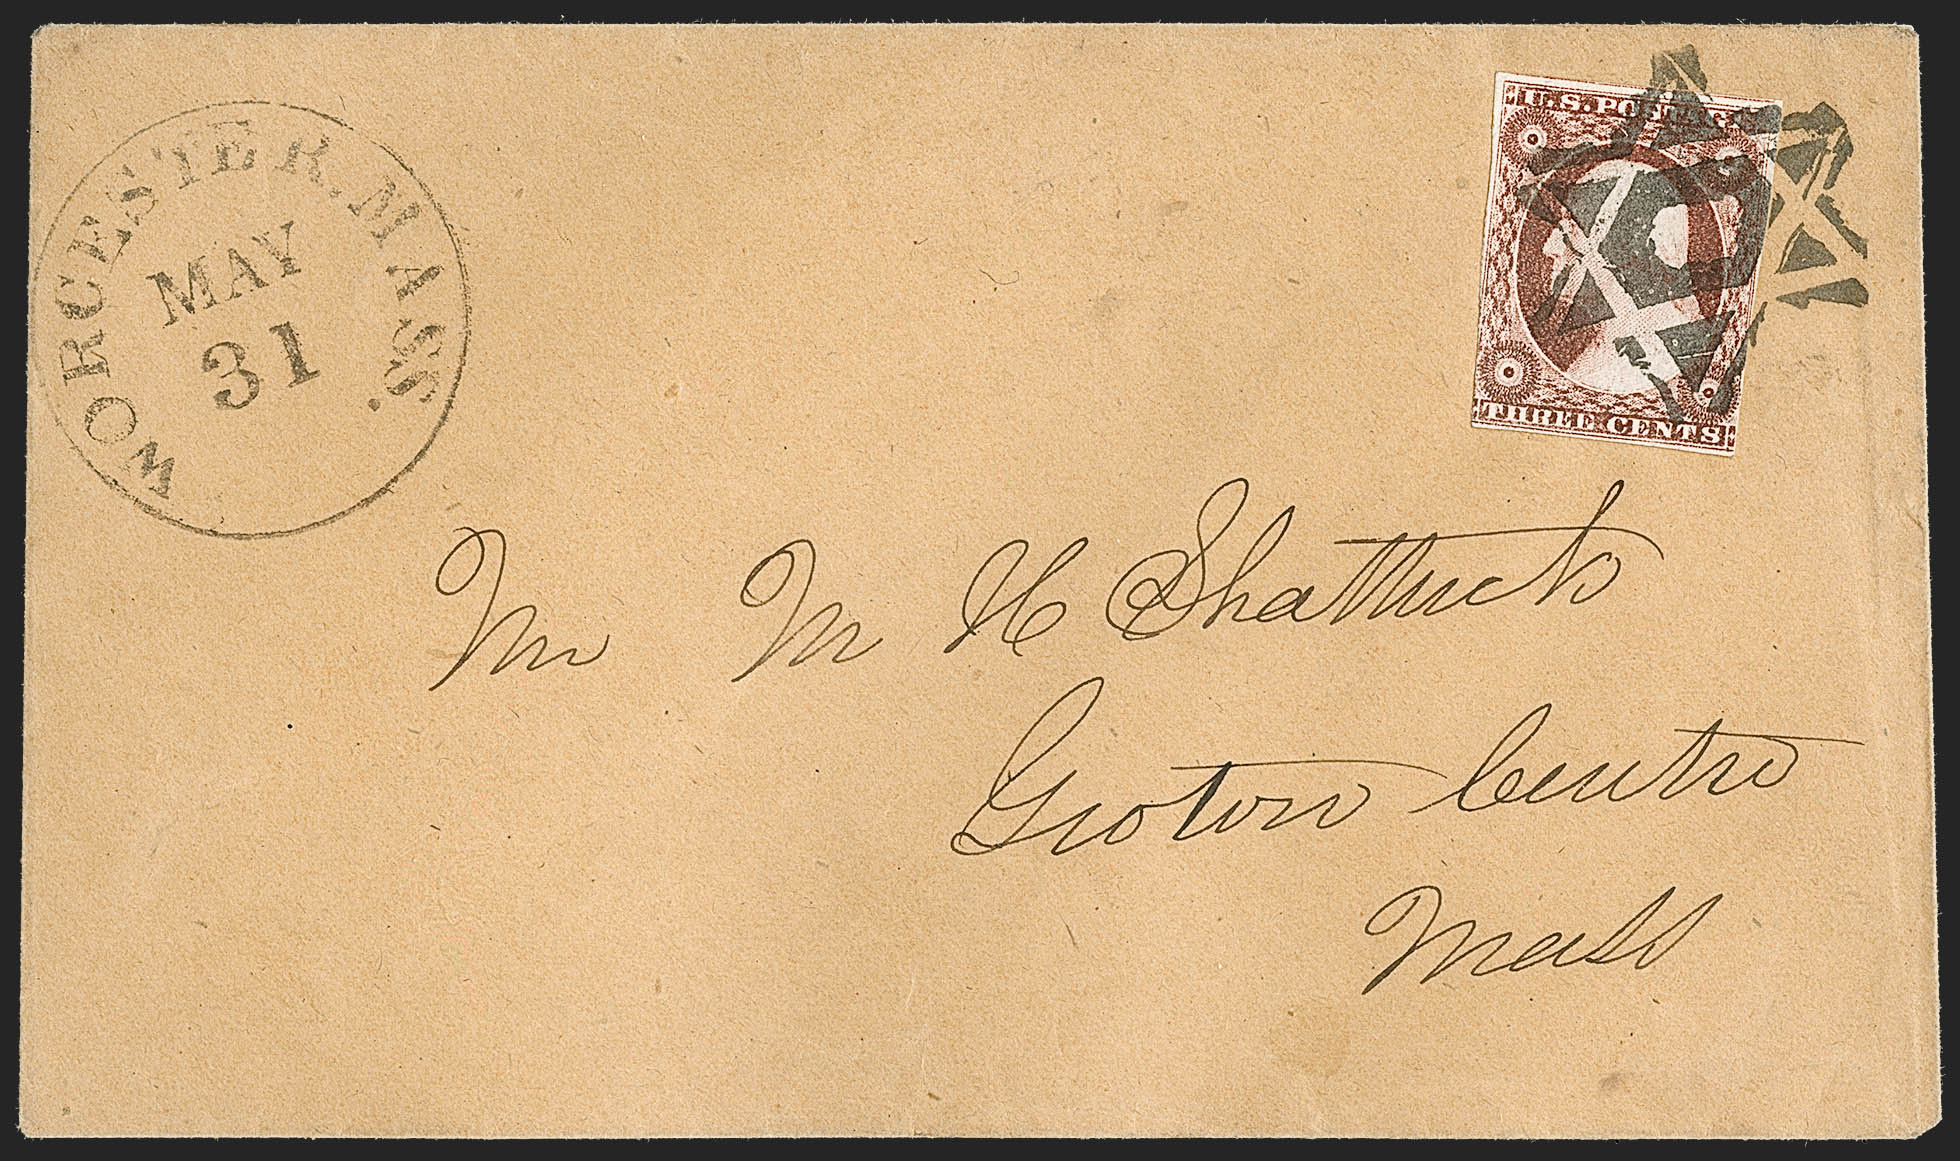 WORCESTER. MASS.
MAY
31
U.S. POSTAGE
THREE CENTS
Mr M H Shattuck
Groton Centre
Mass